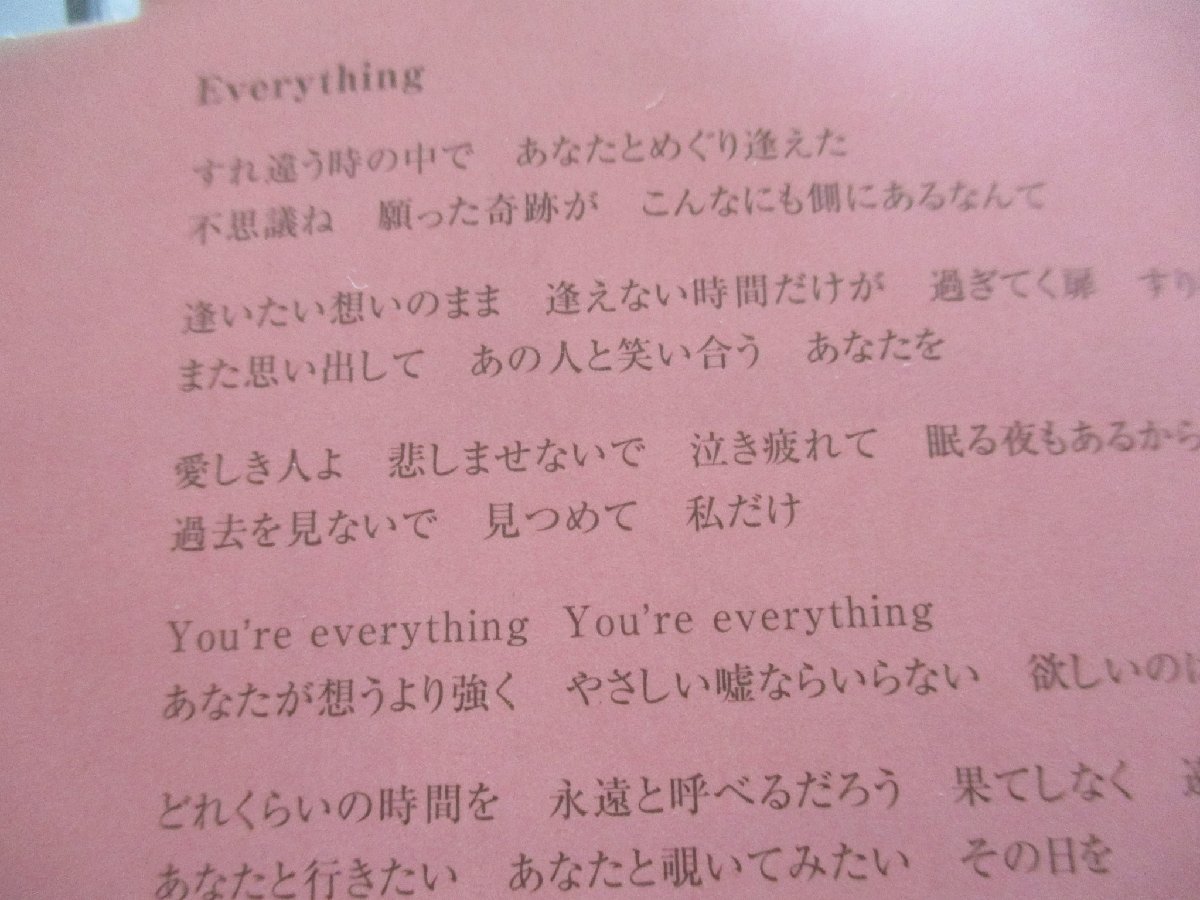 Everything
すれ違う時の中で　あなたとめぐり逢えた
不思議ね　願った奇跡が　こんなにも側にあるなんて
逢いたい想いのまま　逢えない時間だけが　過ぎてく扉　すり
また思い出して　あの人と笑い合う　あなたを
愛しき人よ　悲しませないで　泣き疲れて　眠る夜もあるから
過去を見ないで　見つめて　私だけ
You're everything　You're everything
あなたが想うより強く　やさしい嘘ならいらない　欲しいのは
どれくらいの時間を　永遠と呼べるだろう　果てしなく
あなたと行きたい　あなたと覗いてみたい　その日を